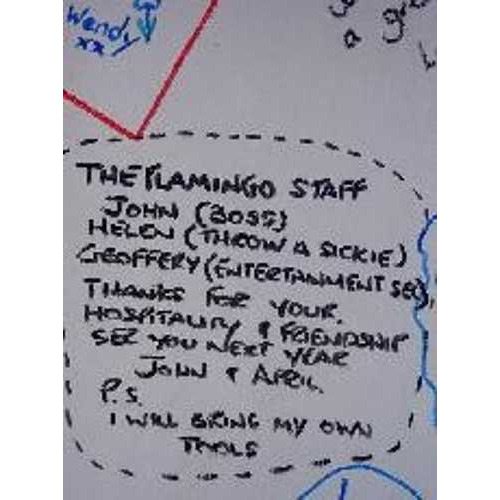 Wendy
xx
THE FLAMINGO STAFF
JOHN (BOSS)
HELEN (THROW A SICKIE)
GEOFFERY (ENTERTANMENT SEC),
THANKS FOR YOUR.
HOSPITALITY & FRIENDSHIP
SEE YOU NEXT YEAR
JOHN & APRIL
P.S.
I WILL BRING MY OWN
TOOLS